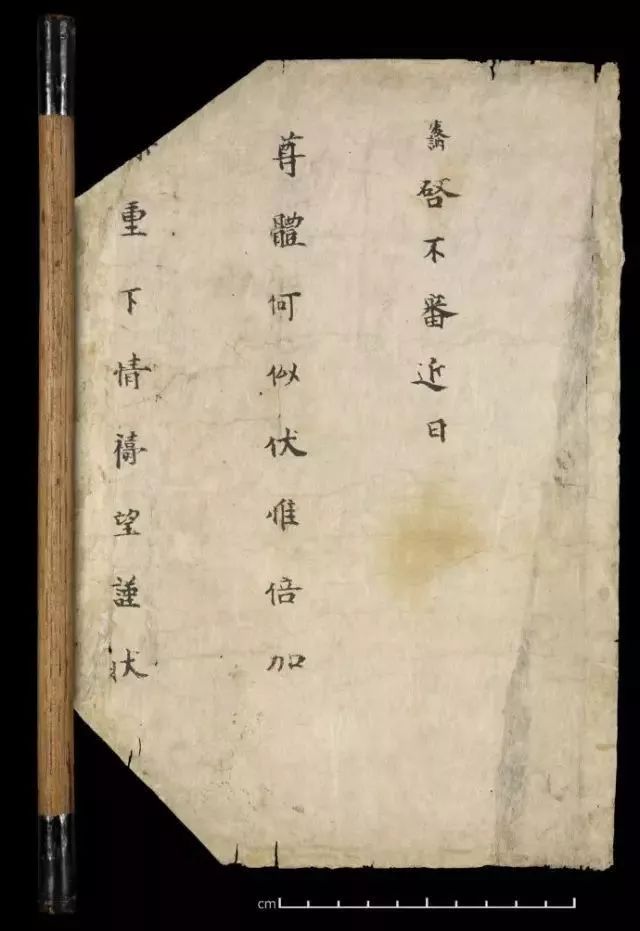 啓不番近日
尊體何似伏惟倍加
重下情禱望謹状
cm